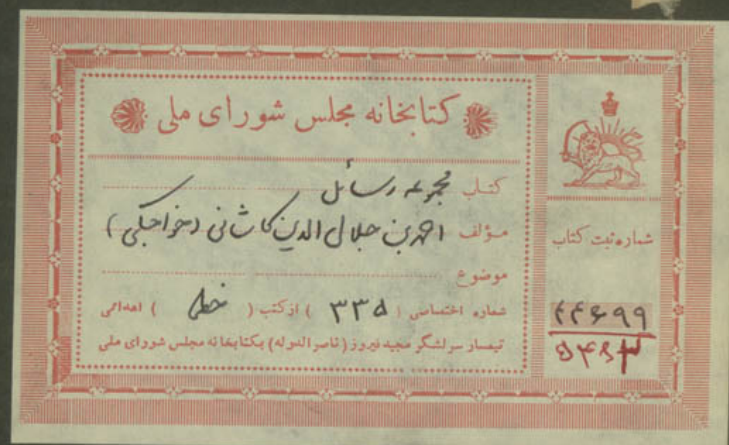 کتابخانه مجلس شورای ملی
کتاب مجموعه رسائل
مؤلف احمد بن جلال الدین کاشانی (خواجگی)
موضوع
شماره اختصاصی ( ۳۳۵ ) از کتب ( خطی ) اهدائی
تیمسار سرلشگر مجید فیروز (ناصرالدوله) بکتابخانه مجلس شورای ملی
شماره ثبت کتاب
۴۴۶۹۹